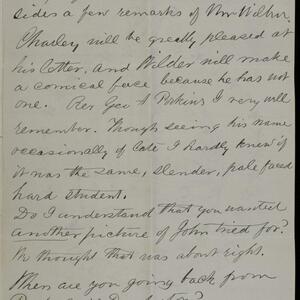 sides a few remarks of Mr Wilbur.
Charley will be greatly pleased at
his letter, and Wilder will make
a comical face because he has not
one. Rev Geo A Perkins I very well
remember. Though seeing his name
occasionally of late I hardly knew if
it was the same, slender, pale faced
hard student.
Do I understand that you wanted
another picture of John tried for?
We thought that was about right.
When are you going back from